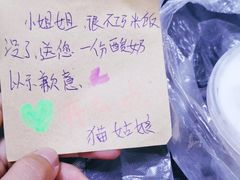 小姐姐，很不巧米饭
没了，送您一份酸奶
以示歉意。
猫姑娘